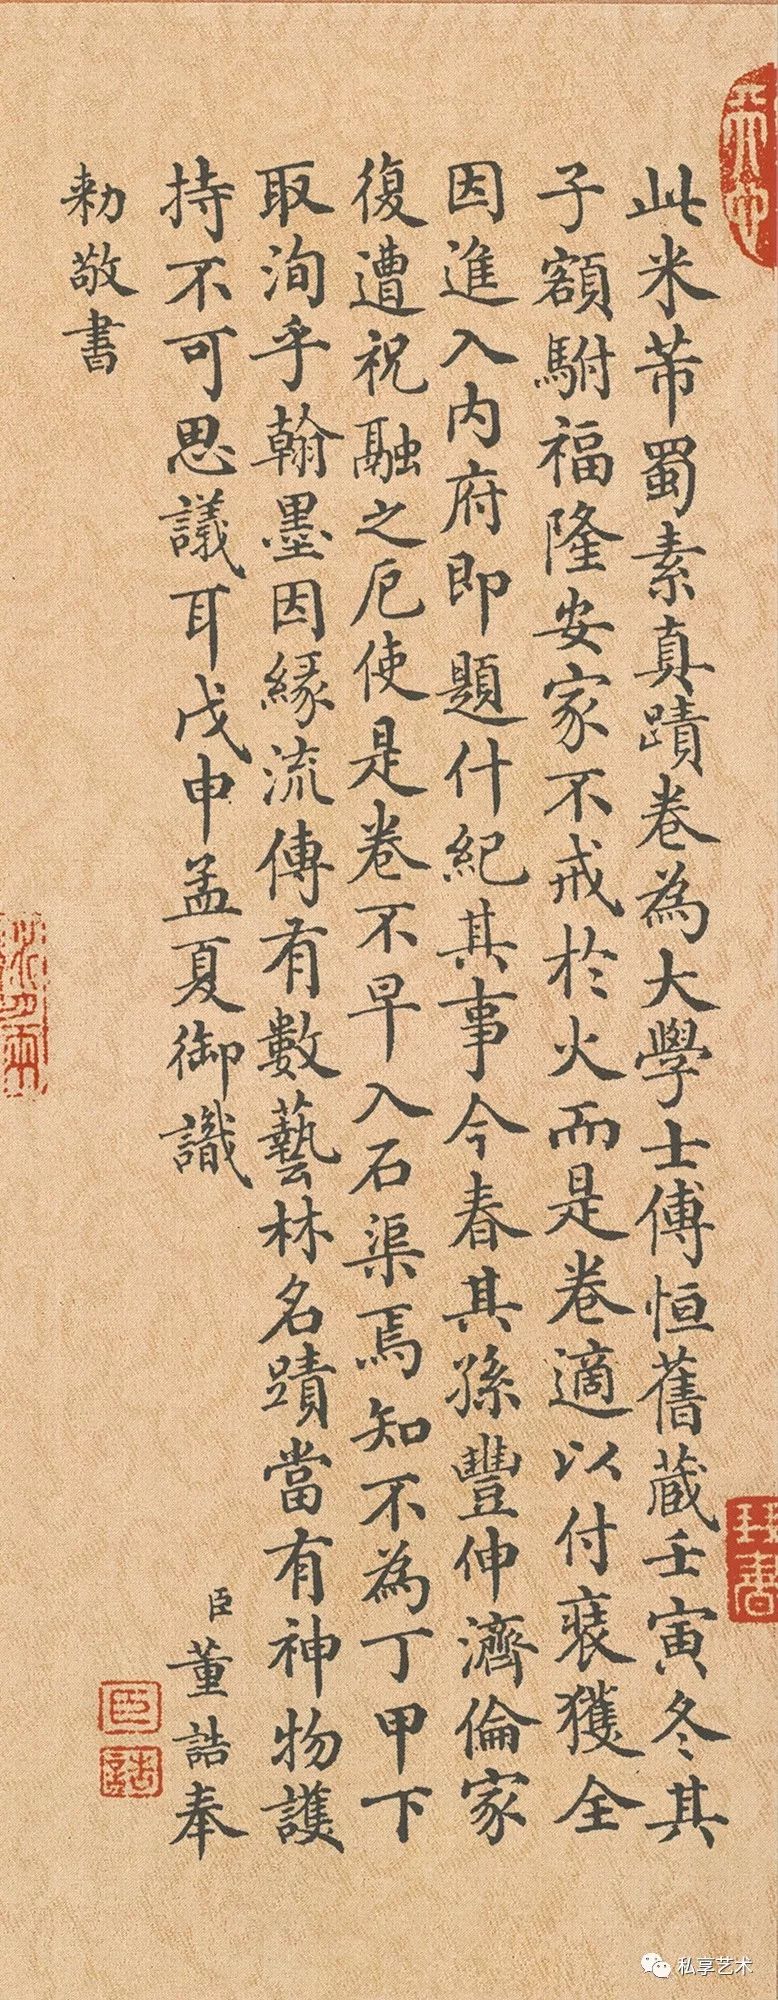 此米芾蜀素真蹟卷為大學士傅恒舊藏壬寅冬其
子額駙福隆安家不戒於火而是卷適以付裝獲全
因進入內府即題什紀其事今春其孫豐伸濟倫家
復遭祝融之厄使是卷不早入石渠焉知不為丁甲下
取洵乎翰墨因緣流傳有數藝林名蹟當有神物護
持不可思議耳戊申孟夏御識
臣董誥奉
勑敬書
臣
誥
私享艺术